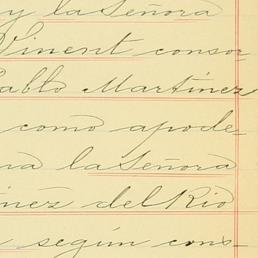 y la Señora
Vinent consor-
Pablo Martinez
como apode-
na la Señora
inez del Rio
según cons-